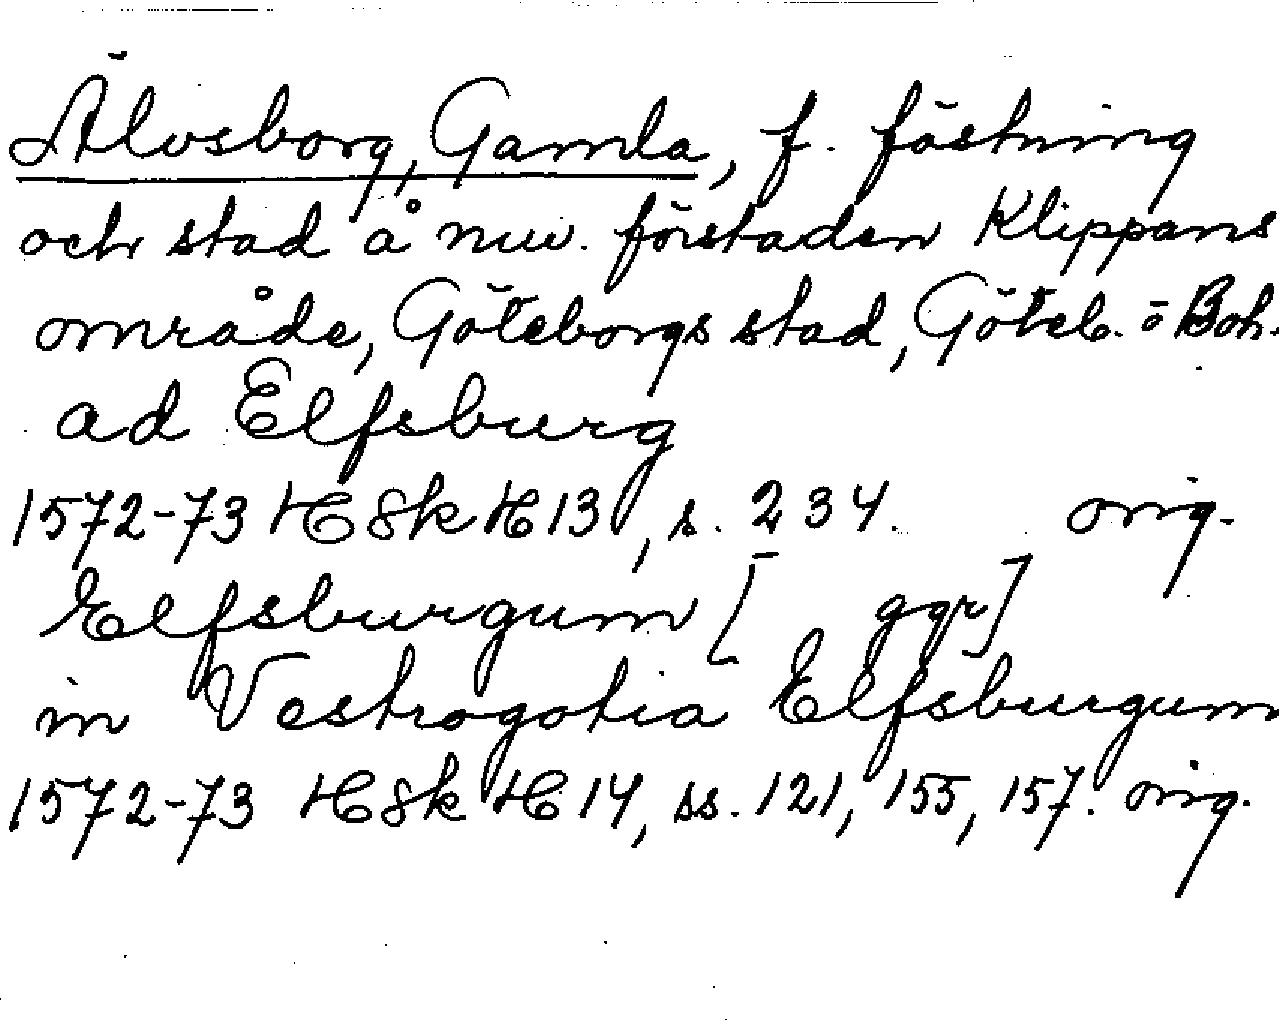 Älvsborg, Gamla, f. fästning
och stad å nuv. förstaden Klippans
område, Göteborgs stad, Göteb. o Boh.
ad Elfsburg
1572-73 H Sk H 13, s. 234. orig.
Elfsburgum [ ggr]
in Vestrogotia Elfsburgum
1572-73 H Sk H 14, ss. 121, 155, 157. orig.